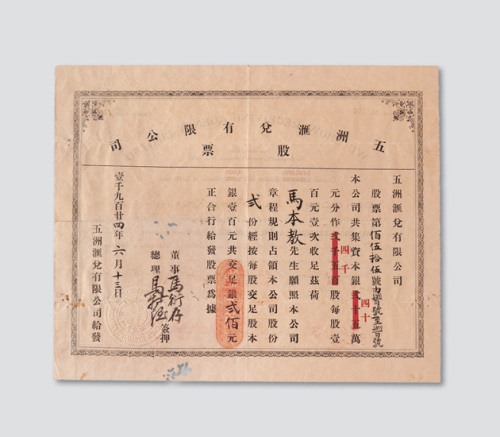 五洲滙兌有限公司
股票
五洲滙兌有限公司
股票第佰伍拾伍號由號至號
本公司共集資本銀四十萬
元分作四千股每股壹
百元壹次收足茲荷
馬本敖先生願照本公司
章程規則占領本公司股份
弍份經按每股交足股本
銀壹百元共交足銀弍佰元
正合行給發股票為據
董事馬
總理馬
簽押
壹千九百廿四年六月十三日
五洲滙兌有限公司給發